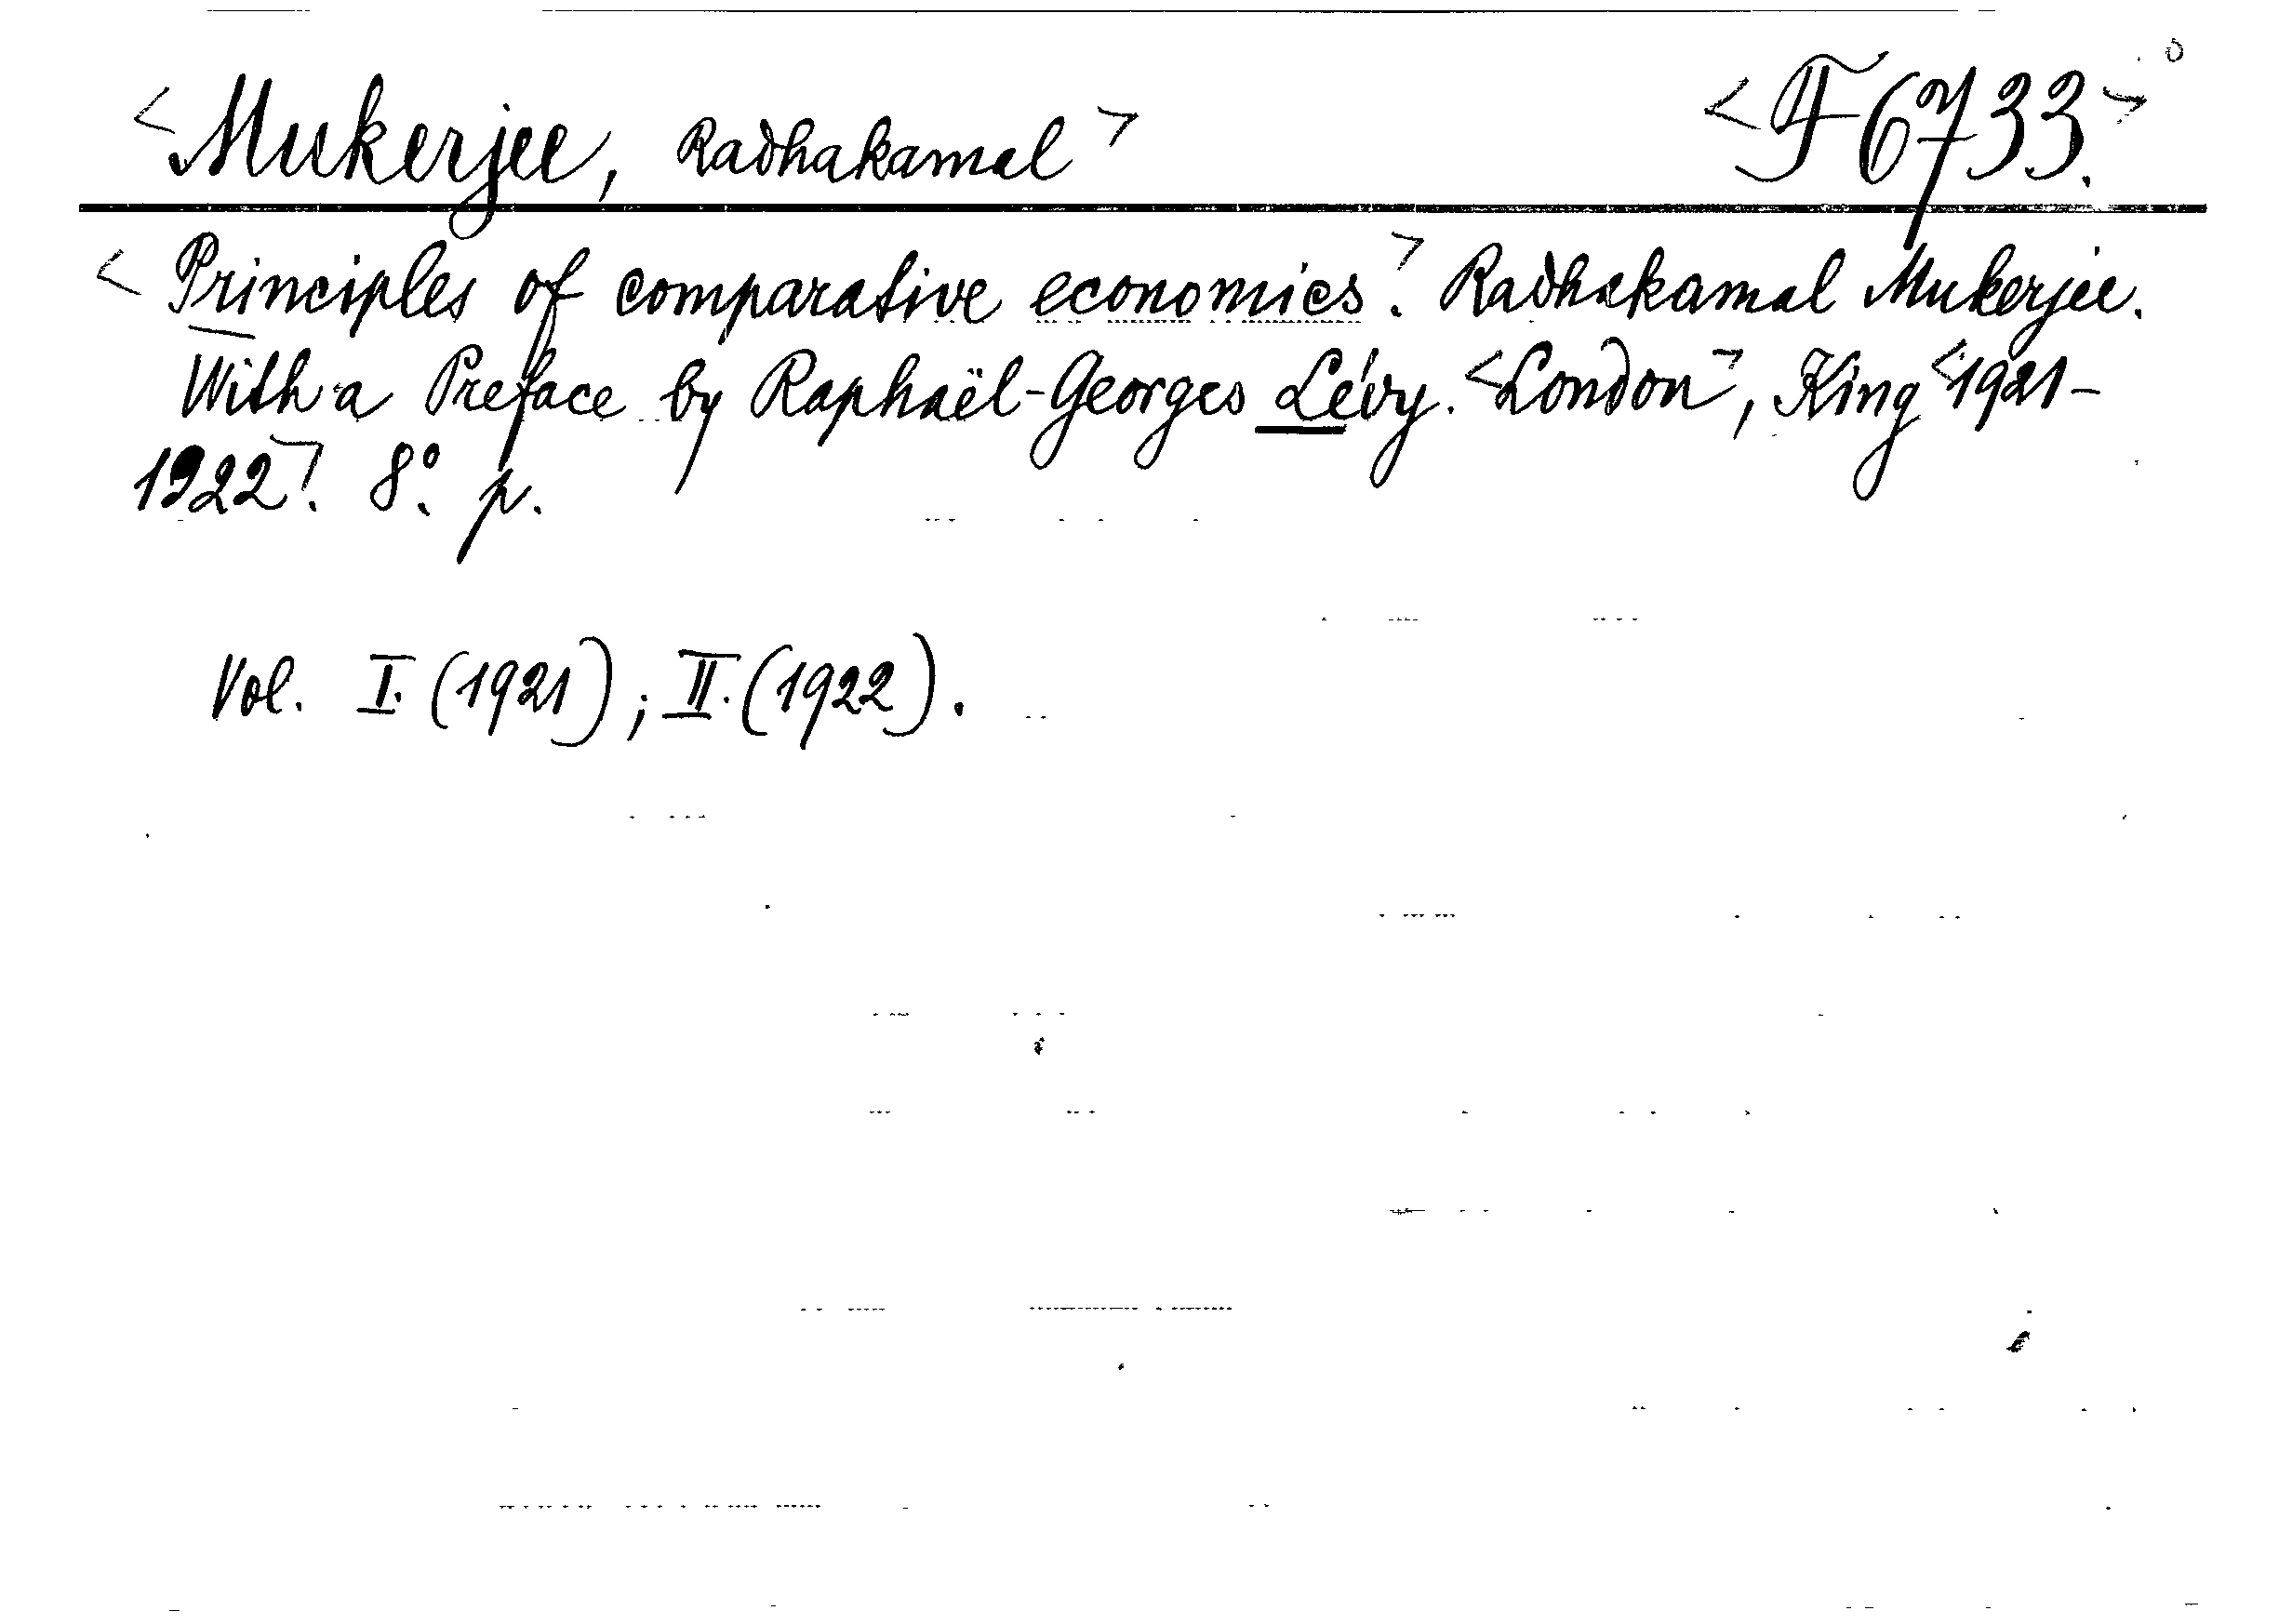 <Mukerjee, Radhakamal> <F 6733.>
<Principles of comparative economics>. Radhakamal Mukerjee.
With a Preface by Raphaël-Georges Lévy. <London>, King <1921-
1922>. 8°. p.
Vol. I. (1921); II. (1922).